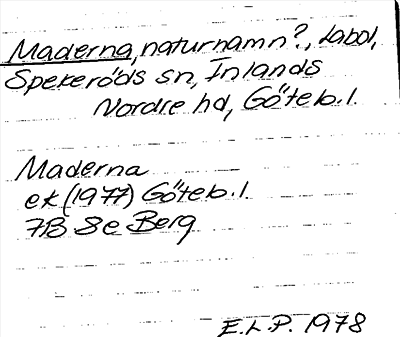 Maderna, naturnamn?, Labol,
Spekeröds sn, Inlands
Nordre hd, Göteb. l.
Maderna
ek (1977) Göteb. l.
7B 8e Berg
E.L.P. 1978